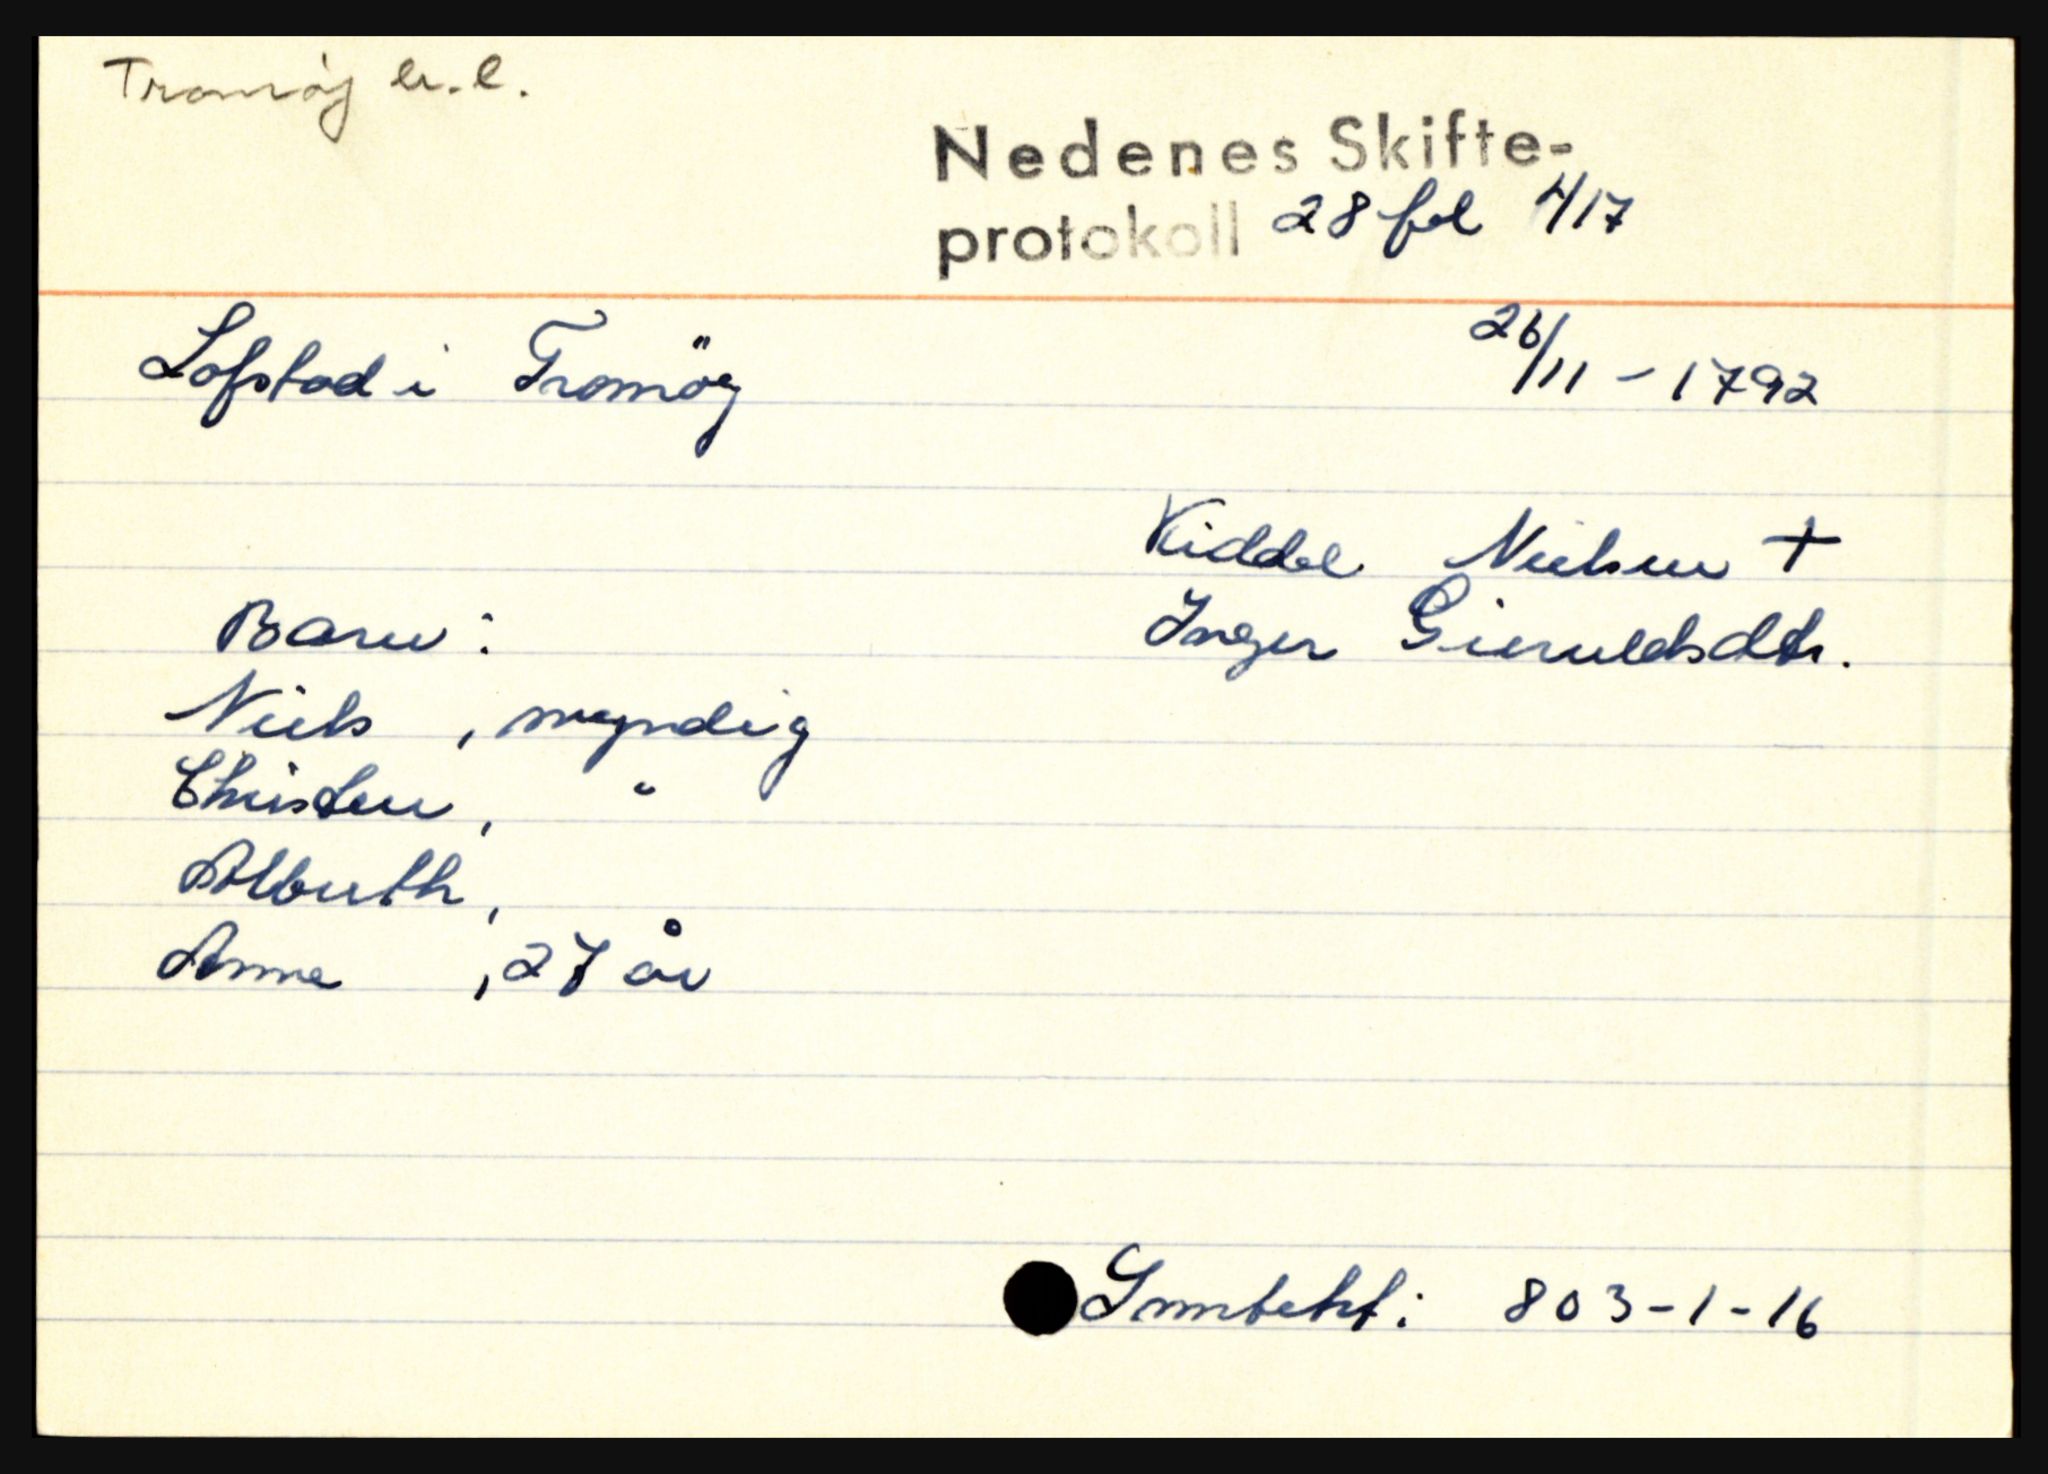 Tromöj l.l.
Nedenes Skifte-
protokoll 28 fol 417
Lofstad i Tromöy 26/11 - 1792
Kiddel Nielsen +
Barn: Inger Gieruldsdtr.
Niels, myndig
Christen, "
Alberth,
Anne, 27 år
Inntekt: 803-1-16